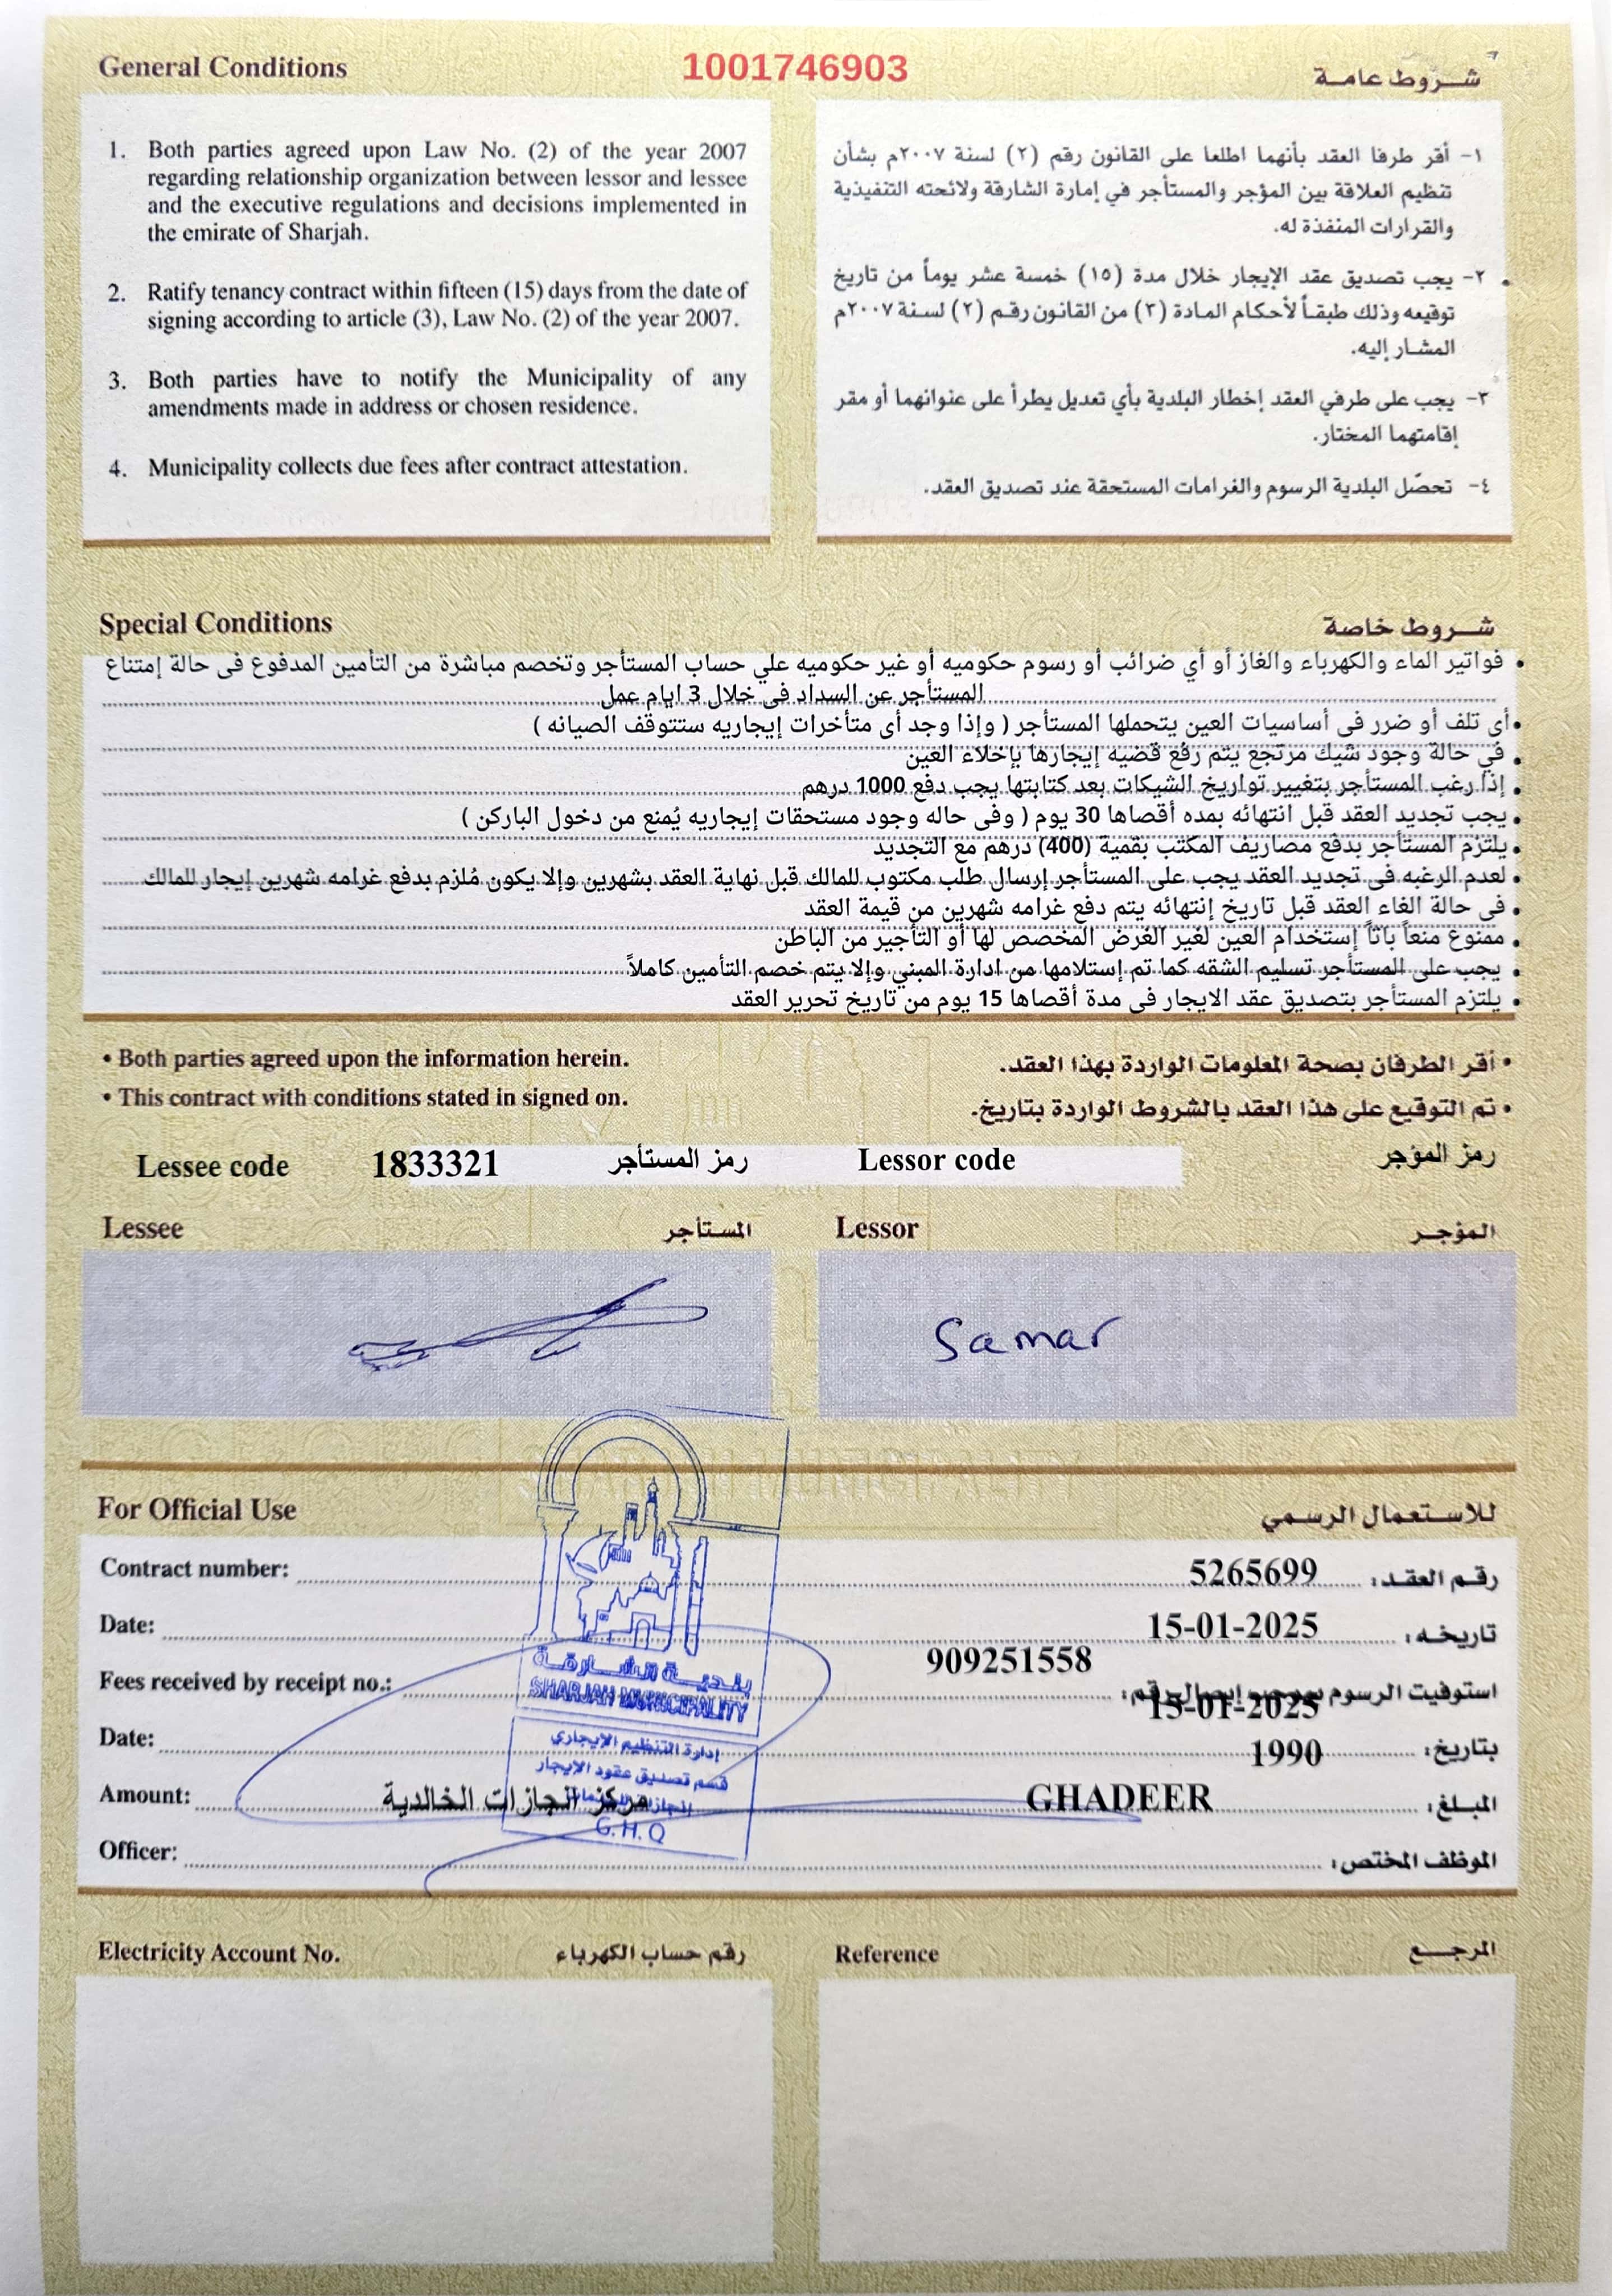 General Conditions
1001746903
شروط عامة
1. Both parties agreed upon Law No. (2) of the year 2007
regarding relationship organization between lessor and lessee
and the executive regulations and decisions implemented in
the emirate of Sharjah.
2. Ratify tenancy contract within fifteen (15) days from the date of
signing according to article (3), Law No. (2) of the year 2007.
3. Both parties have to notify the Municipality of any
amendments made in address or chosen residence.
4. Municipality collects due fees after contract attestation.
١- أقر طرفا العقد بأنهما اطلعا على القانون رقم (٢) لسنة ٢٠٠٧م بشأن
تنظيم العلاقة بين المؤجر والمستأجر في إمارة الشارقة ولائحته التنفيذية
والقرارات المنفذة له.
٢- يجب تصديق عقد الإيجار خلال مدة (١٥) خمسة عشر يوماً من تاريخ
توقيعه وذلك طبقاً لأحكام المادة (٣) من القانون رقم (٢) لسنة ٢٠٠٧م
المشار إليه.
٣- يجب على طرفي العقد إخطار البلدية بأي تعديل يطرأ على عنوانهما أو مقر
إقامتهما المختار.
٤- تحصّل البلدية الرسوم والغرامات المستحقة عند تصديق العقد.
Special Conditions
شروط خاصة
• فواتير الماء والكهرباء والغاز أو أي ضرائب أو رسوم حكوميه أو غير حكوميه علي حساب المستأجر وتخصم مباشرة من التأمين المدفوع فى حالة إمتناع
المستأجر عن السداد فى خلال 3 ايام عمل
• أى تلف أو ضرر فى أساسيات العين يتحملها المستأجر ( وإذا وجد أى متأخرات إيجاريه ستتوقف الصيانه )
• في حالة وجود شيك مرتجع يتم رفع قضيه إيجارها بإخلاء العين
• إذا رغب المستأجر بتغيير تواريخ الشيكات بعد كتابتها يجب دفع 1000 درهم
• يجب تجديد العقد قبل انتهائه بمده أقصاها 30 يوم ( وفى حاله وجود مستحقات إيجاريه يُمنع من دخول الباركن )
• يلتزم المستأجر بدفع مصاريف المكتب بقمية (400) درهم مع التجديد
• لعدم الرغبه فى تجديد العقد يجب على المستأجر إرسال طلب مكتوب للمالك قبل نهاية العقد بشهرين وإلا يكون مُلزم بدفع غرامه شهرين إيجار للمالك
• فى حالة الغاء العقد قبل تاريخ إنتهائه يتم دفع غرامه شهرين من قيمة العقد
• ممنوع منعاً باتاً إستخدام العين لغير الغرض المخصص لها أو التأجير من الباطن
• يجب على المستأجر تسليم الشقه كما تم إستلامها من ادارة المبني وإلا يتم خصم التأمين كاملاً
• يلتزم المستأجر بتصديق عقد الايجار فى مدة أقصاها 15 يوم من تاريخ تحرير العقد
• Both parties agreed upon the information herein.
• أقر الطرفان بصحة المعلومات الواردة بهذا العقد.
• This contract with conditions stated in signed on.
• تم التوقيع على هذا العقد بالشروط الواردة بتاريخ.
Lessee code 1833321 رمز المستأجر
Lessor code رمز المؤجر
Lessee المستأجر
Lessor المؤجر
Samar
SHARJAH MUNICIPALITY
For Official Use
للاستعمال الرسمي
Contract number: 5265699 رقم العقد:
Date: 15-01-2025 تاريخه:
909251558
Fees received by receipt no.: استوفيت الرسوم بموجب إيصال رقم:
15-01-2025
Date: 1990 بتاريخ:
Amount: مركز انجازات الخالدية GHADEER المبلغ:
Officer: الموظف المختص:
بلدية الشارقة
SHARJAH MUNICIPALITY
إدارة التنظيم الإيجاري
قسم تصديق عقود الايجار
G.H.Q
Electricity Account No. رقم حساب الكهرباء
Reference المرجع